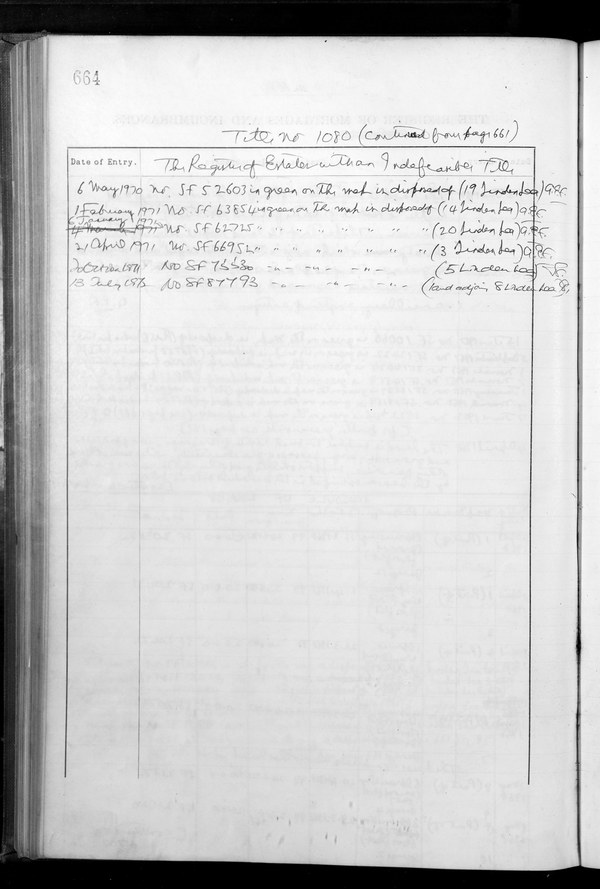 664
Title no 1080 (continued from page 661)
Date of Entry. The Register of Estates with an Indefeasible Title
6 May 1970 no. SF 52603 in green on the map is disposed of (19 Linden Lea)
1 February 1971 No. SF 63854 in green on the map is disposed of (14 Linden Lea)
6 January 1971
4 March 1971 No. SF 62725 " " " " " " " " (20 Linden Lea)
21 April 1971 No. SF 66952 " " " " " " " " (3 Linden Lea)
October 1971 No SF 73530 -"- -"- -"- (5 Linden Lea)
13 July 1973 No SF 87793 -"- -"- -"- (land adjoing 8 Linden Lea)